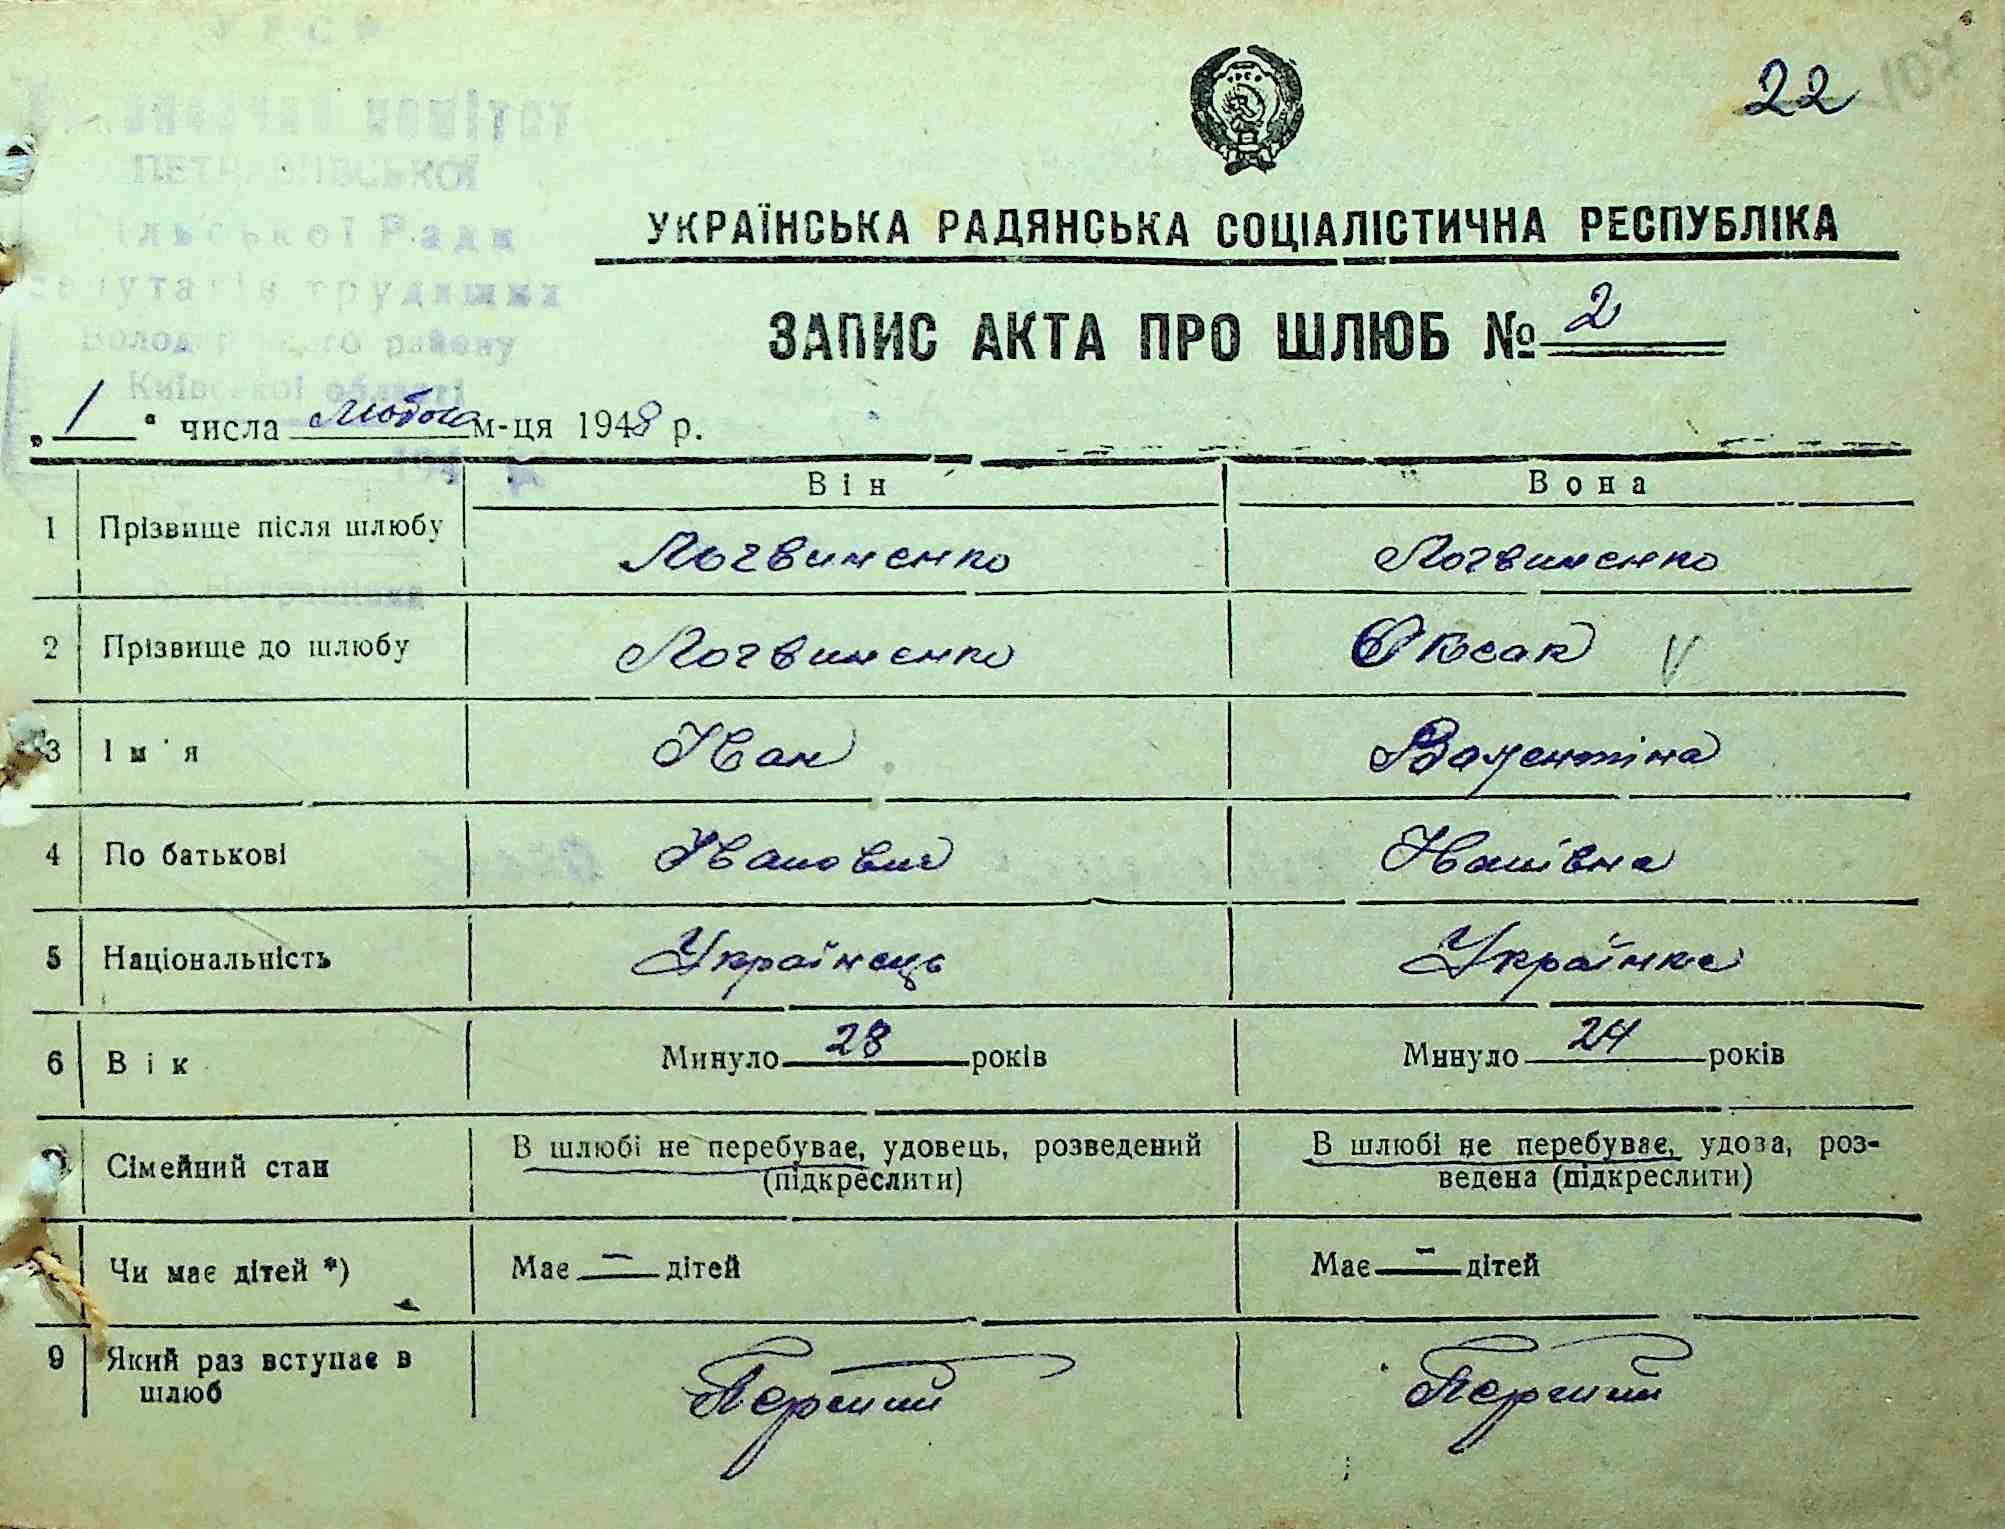 УРСР
комітет
ільської Ради
депутатів трудящих
району
Київської області
22
УКРАЇНСЬКА РАДЯНСЬКА СОЦІАЛІСТИЧНА РЕСПУБЛІКА
ЗАПИС АКТА ПРО ШЛЮБ № 2
„ 1 " числа Лютого м-ця 1948 р.
Він Вона
1 Прізвище після шлюбу Логвиненко Логвиненко
2 Прізвище до шлюбу Логвиненко Оксак V
3 Ім'я Іван Валентіна
4 По батькові Іванович Іванівна
5 Національність Українець Українка
6 Вік Минуло 28 років Минуло 24 років
Сімейний стан В шлюбі не перебуває, удовець, розведений В шлюбі не перебуває, удова, роз-
(підкреслити) ведена (підкреслити)
Чи має дітей *) Має — дітей Має — дітей
9 Який раз вступає в Перший Перший
шлюб